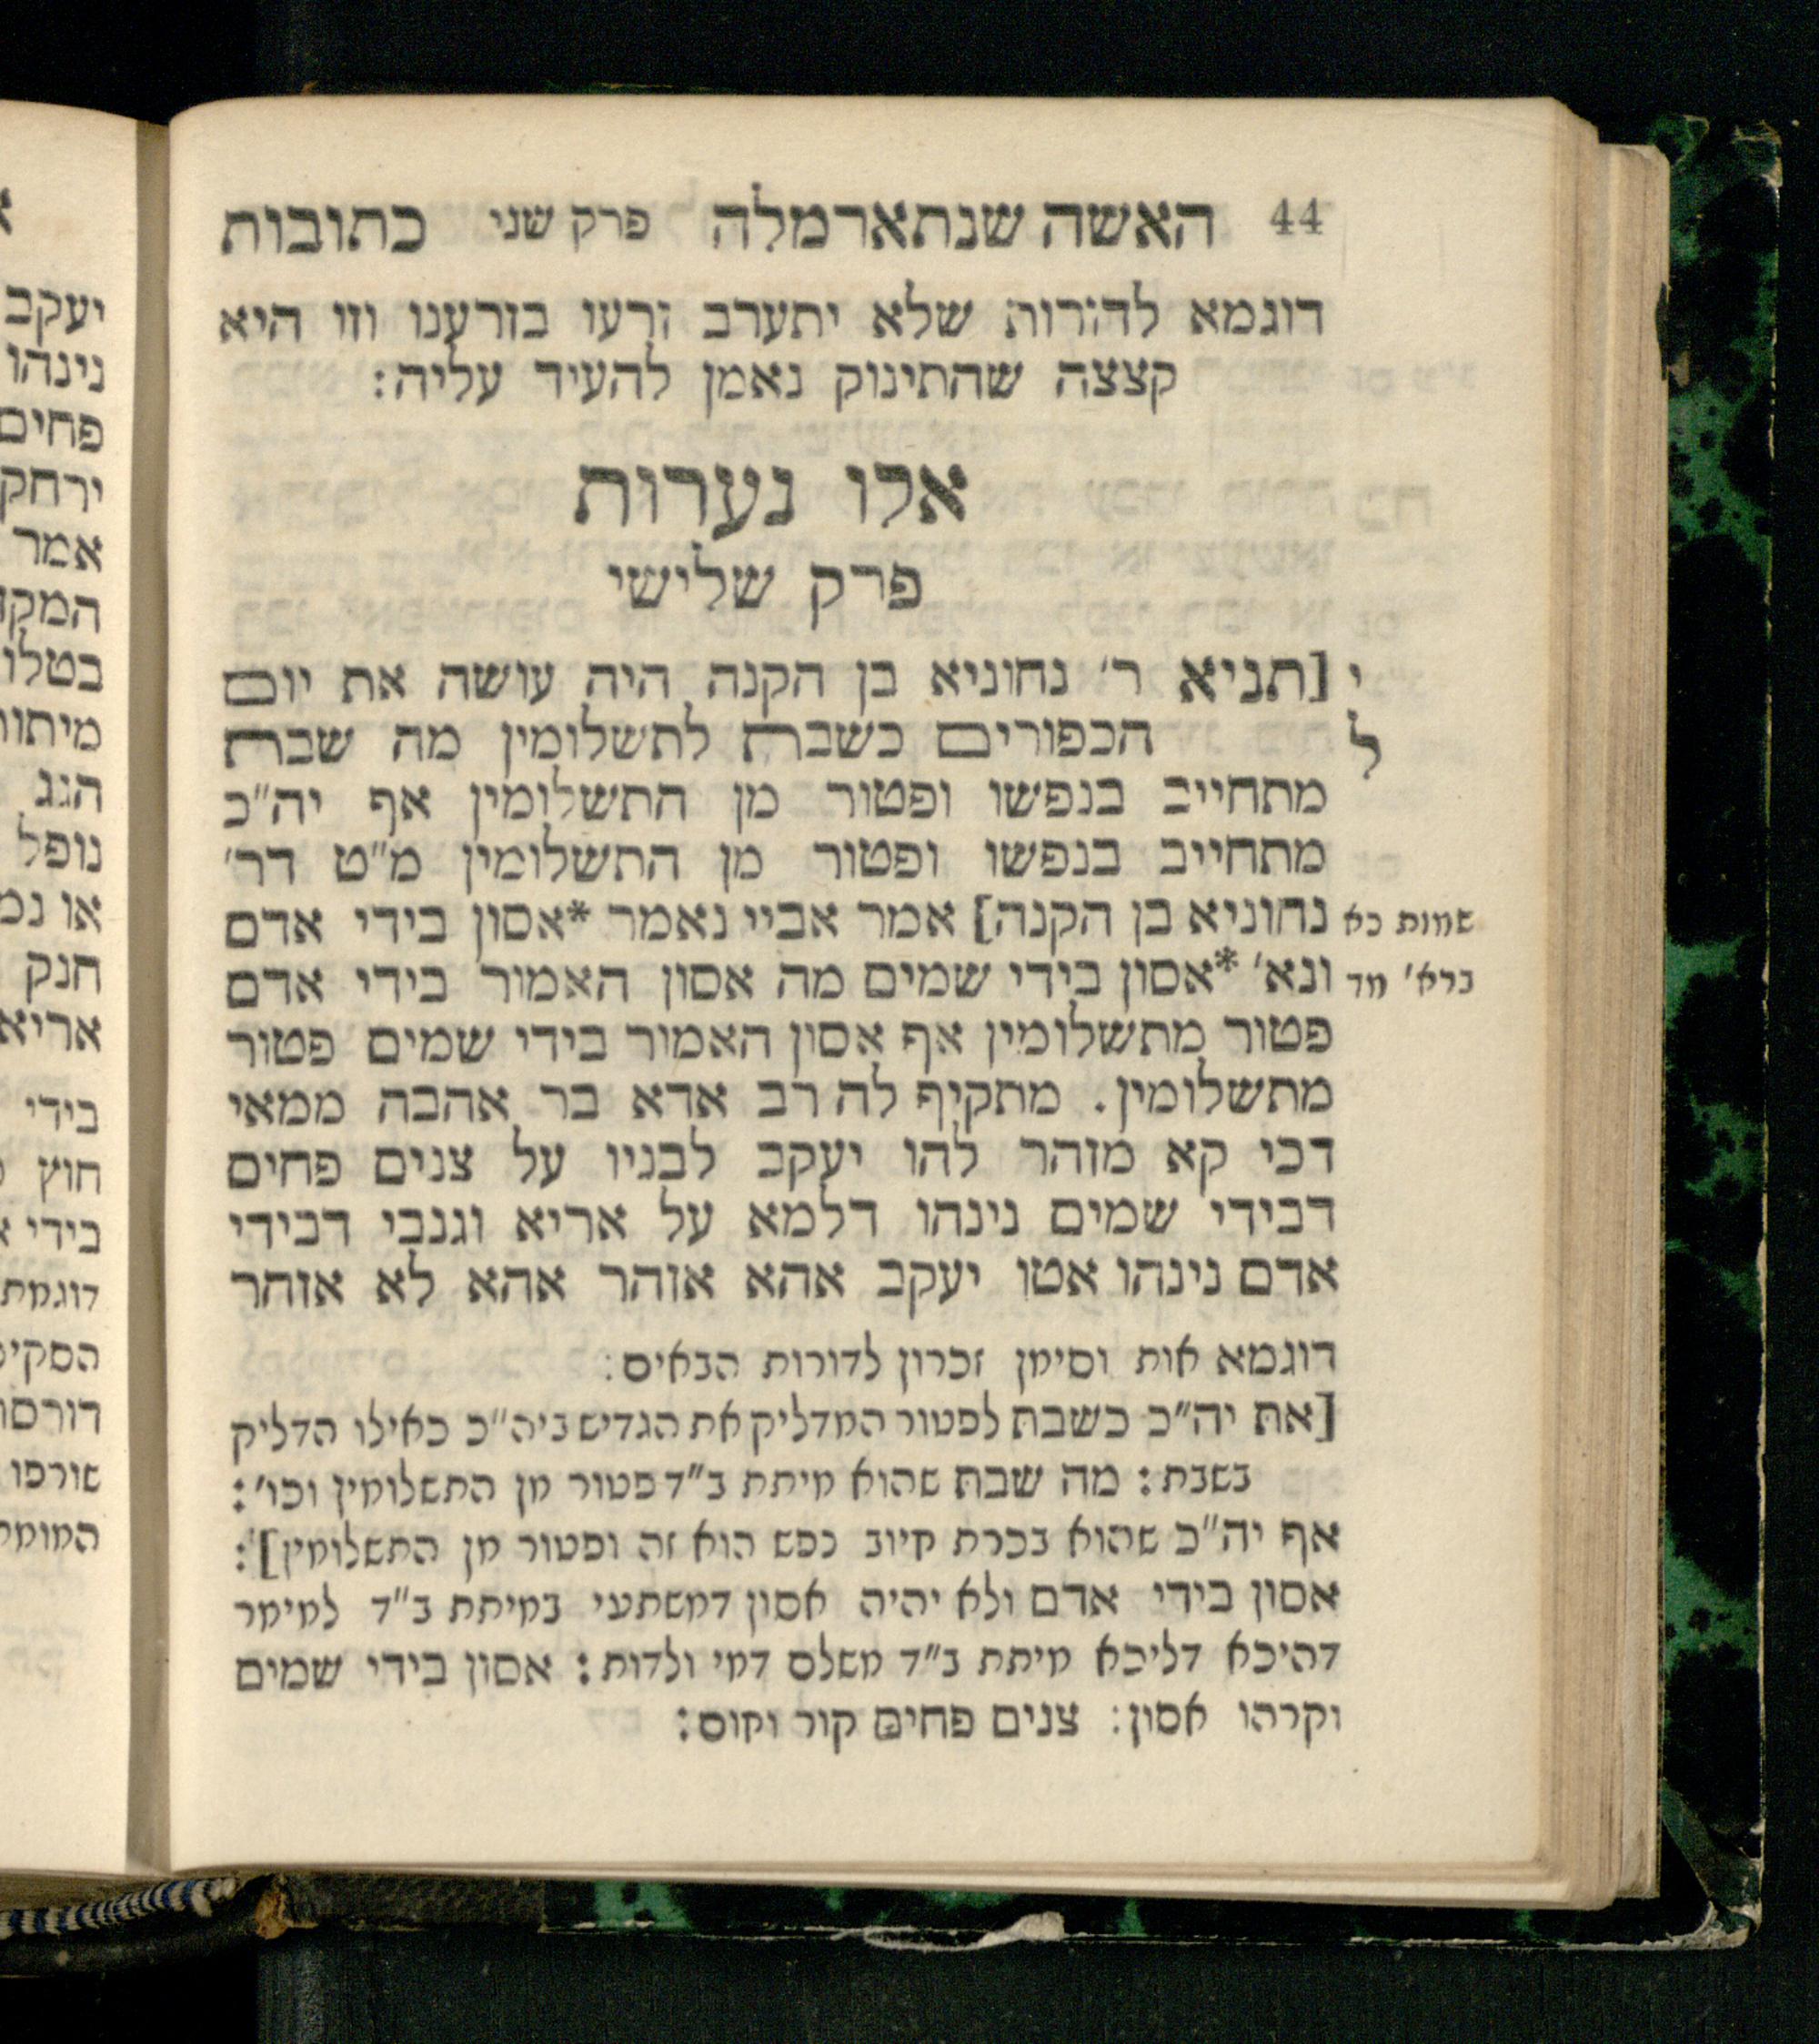 44 האשה שנתארמלה פרק שני כתובות
דוגמא לדורות שלא יתערב זרעו בזרענו וזו היא
קצצה שהתינוק נאמן להעיד עליה:
אלו נערות
פרק שלישי
י [תניא ר׳ נחוניא בן הקנה היה עושה את יום
ל הכפורים כשבת לתשלומין מה שבת
מתחייב בנפשו ופטור מן התשלומין אף יה״כ
מתחייב בנפשו ופטור מן התשלומין מ״ט דר׳
שמות כא נחוניא בן הקנה] אמר אביי נאמר *אסון בידי אדם
ברא׳ מד ונא׳ *אסון בידי שמים מה אסון האמור בידי אדם
פטור מתשלומין אף אסון האמור בידי שמים פטור
מתשלומין. מתקיף לה רב אדא בר אהבה ממאי
דכי קא מזהר להו יעקב לבניו על צנים פחים
דבידי שמים נינהו דלמא על אריא וגנבי דבידי
אדם נינהו אטו יעקב אהא אזהר אהא לא אזהר
דוגמא אות וסימן זכרון לדורות הבאים:
[את יה״כ כשבת לפטור המדליק את הגדיש ביה״כ כאילו הדליק
בשבת: מה שבת שהוא מיתת ב״ד פטור מן התשלומין וכו׳:
אף יה״כ שהוא בכרת חיוב נפש הוא זה ופטור מן התשלומין]:
אסון בידי אדם ולא יהיה אסון דמשתעי במיתת ב״ד למימר
דהיכא דליכא מיתת ב״ד משלם דמי ולדות: אסון בידי שמים
וקרהו אסון: צנים פחים קור וחום:
יעקב
נינהו
פחים
ירחק
אמר
בטלו
הגג
נופל
חנק
אריא
בידי
חוץ
בידי
שורפו